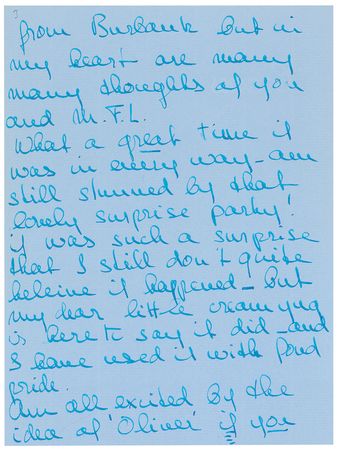 3
from Burbank but in
my heart are many
many thoughts of you
and M.F.L.
What a great time it
was in every way - am
still stunned by that
lovely surprise party!
it was such a surprise
that I still don't quite
beleive it happened - but
my dear little cream jug
is here to say it did - and
I have used it with fond
pride.
Am all excited by the
idea of 'Oliver' if you